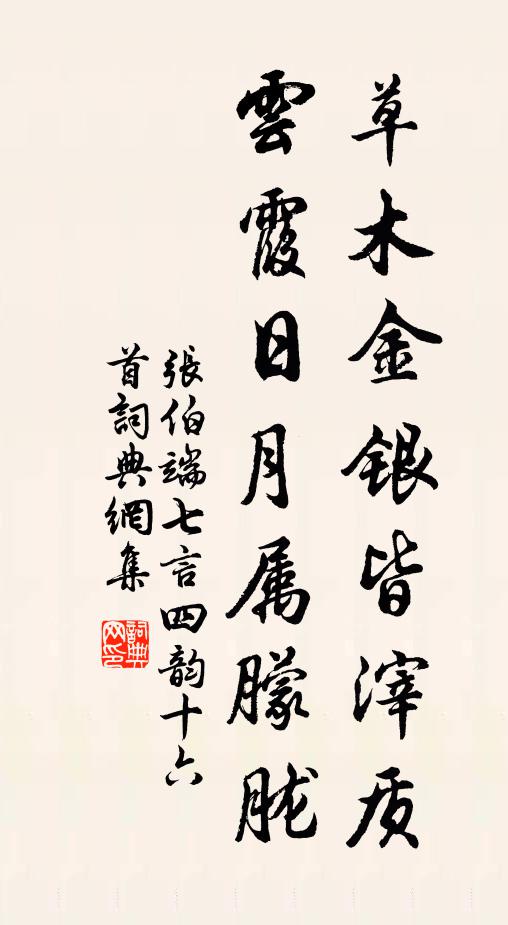 草木金銀皆滓质
雲霞日月属朦胧
張伯端七言四韵十六
首詞典網集
詞典
网印